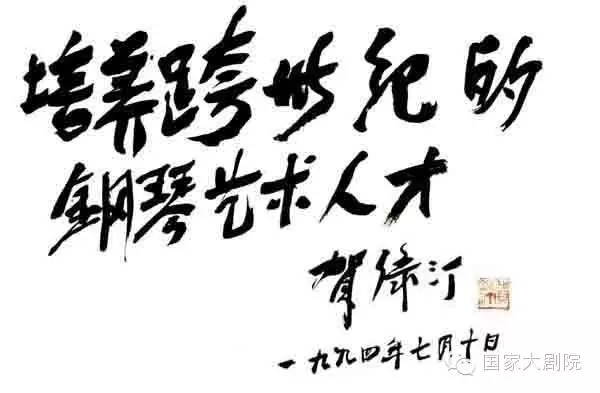 培养跨世纪的
鋼琴艺术人才
贺绿汀
一九九四年七月十日
国家大剧院